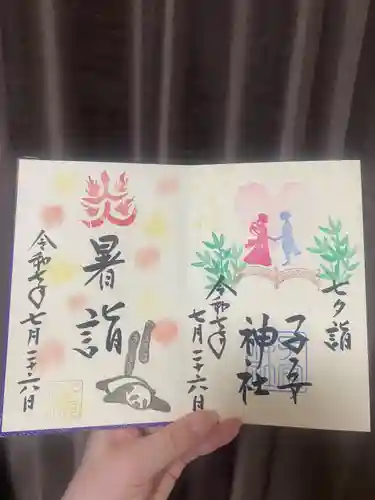 七夕詣
子安
神社
令和七年
七月二十六日
炎
暑詣
令和七年
七月二十六日